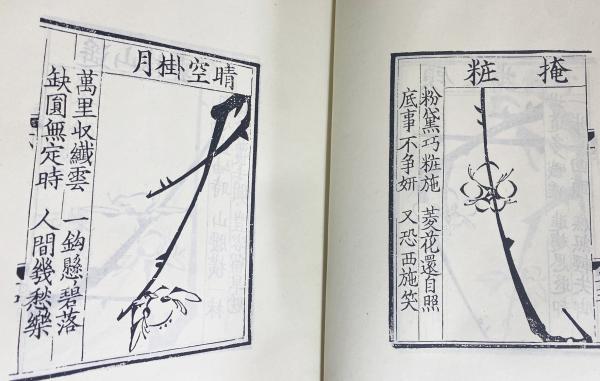 掩粧
粉黛巧粧施 菱花還自照
底事不争妍 又恐西施笑
晴空掛月
萬里収纖雲 一鈎懸碧落
缺圓無定時 人間幾愁樂